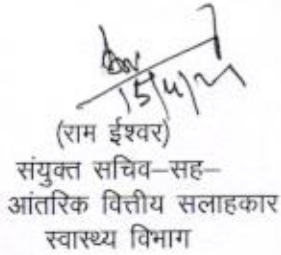 15/4/21
(राम ईश्वर)
संयुक्त सचिव–सह–
आंतरिक वित्तीय सलाहकार
स्वास्थ्य विभाग